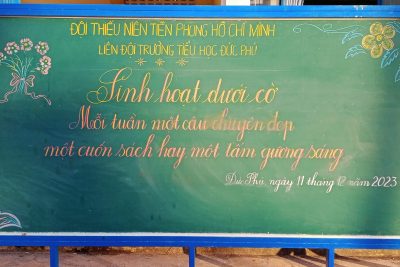 ĐỘI THIẾU NIÊN TIỀN PHONG HỒ CHÍ MINH
LIÊN ĐỘI TRƯỜNG TIỂU HỌC ĐỨC PHÚ
Sinh hoạt dưới cờ
Mỗi tuần một câu chuyện đẹp
một cuốn sách hay một tấm gương sáng
Đức Phú, ngày 11 tháng 12 năm 2023